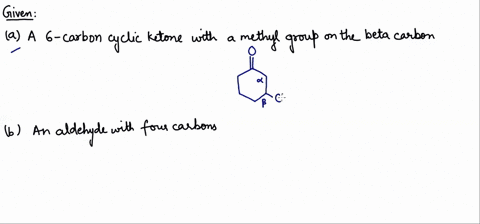 Given:
(a) A 6-carbon cyclic ketone with a methyl group on the beta carbon
O
α
β C
(b) An aldehyde with four carbons